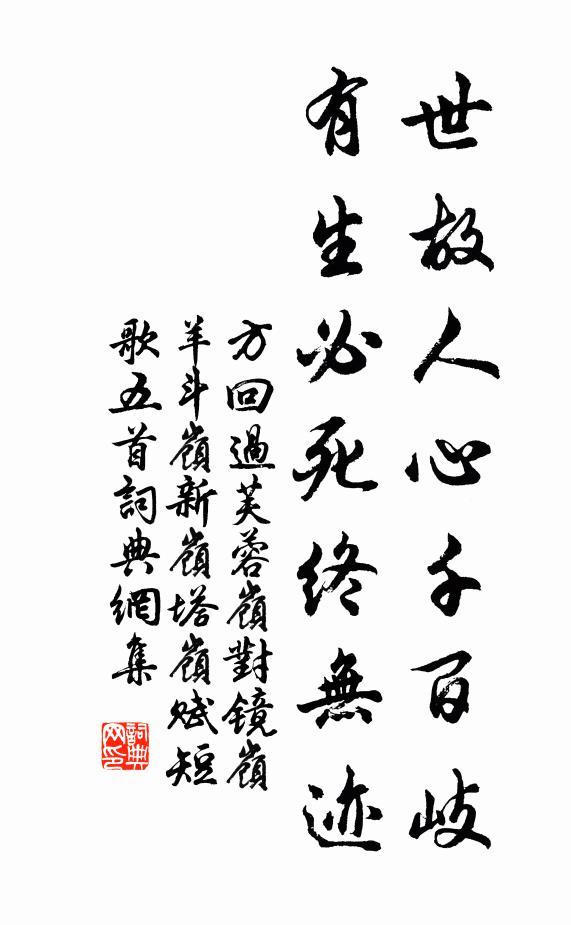 世故人心千百岐
有生必死终無迹
方回過芙蓉嶺對镜嶺
羊斗嶺新嶺塔嶺赋短
歌五首詞典網集
詞典
网印